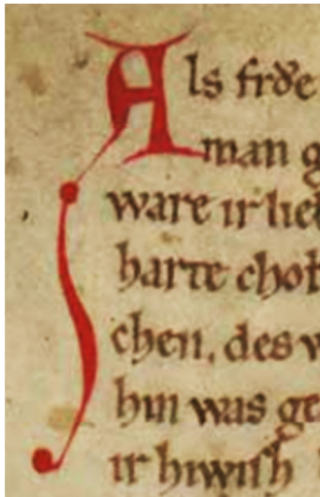 Als frŏe
man g
ware ir lieb
harte chob
chen. des w
hin was ge
ir hiwish